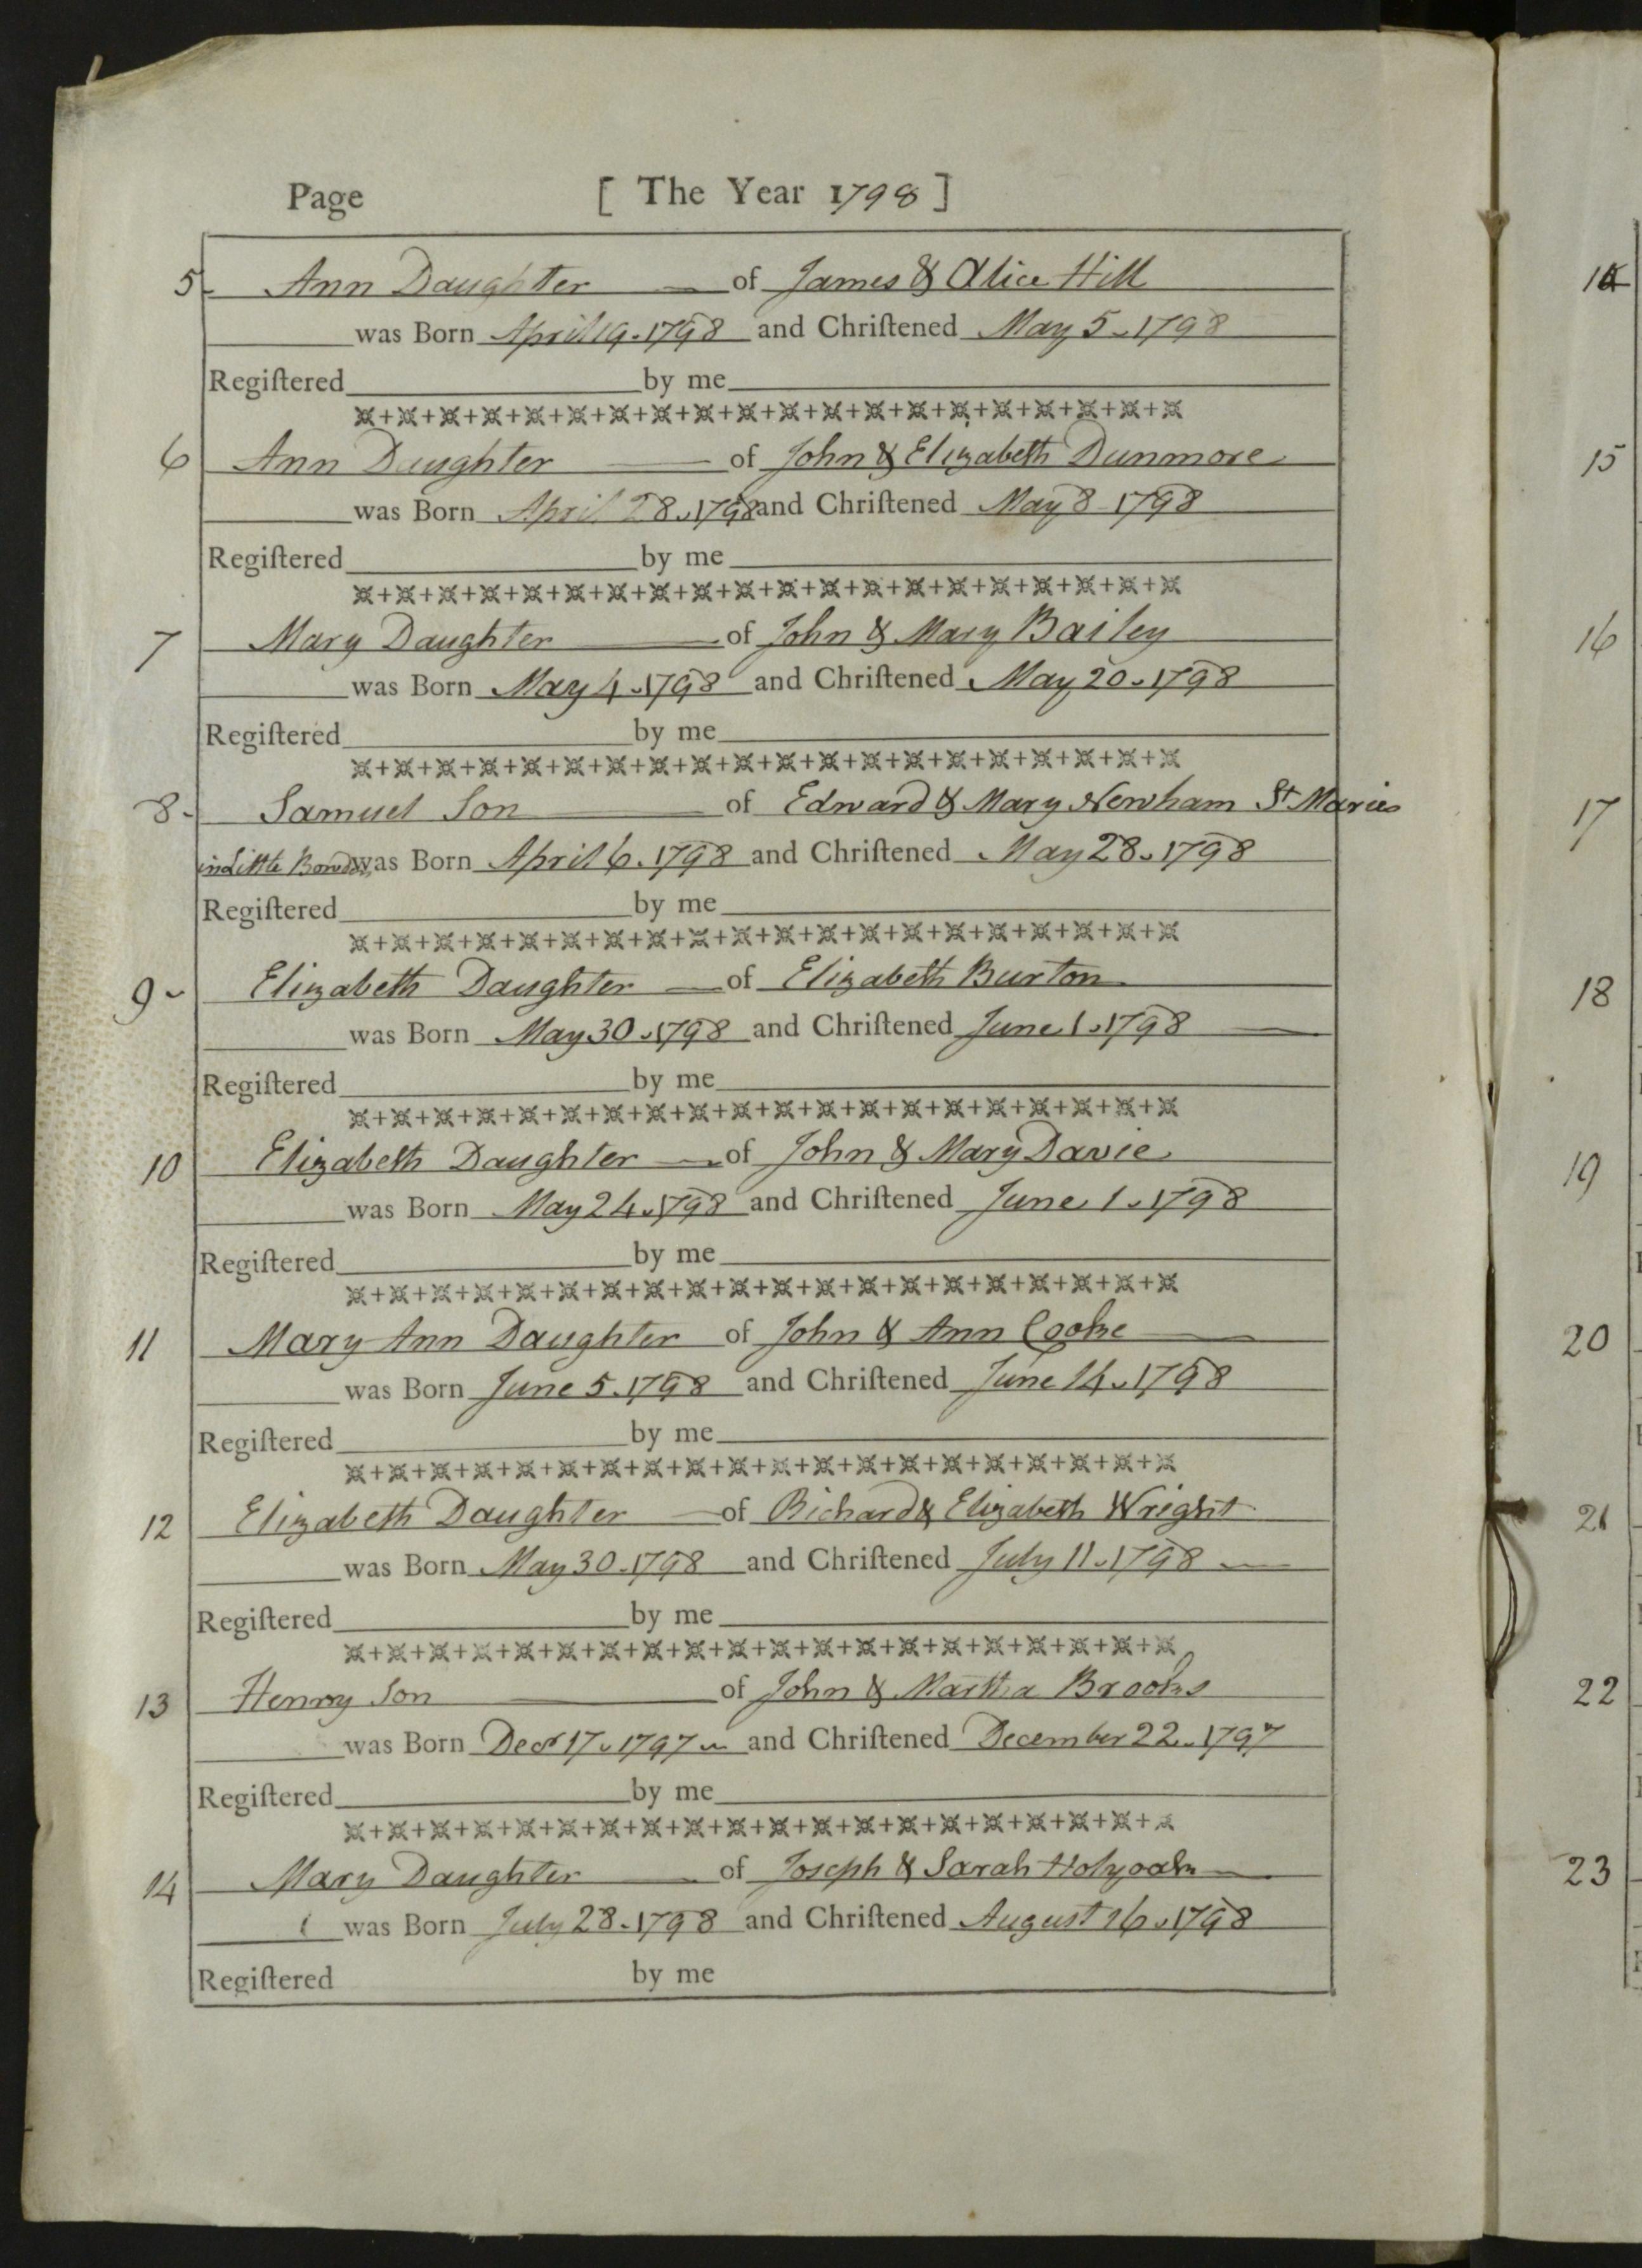 Page [ The Year 1798 ]
5 Ann Daughter of James & Alice Hill
was Born April 19. 1798 and Chriſtened May 5 1798
Regiſtered by me
6 Ann Daughter of John & Elizabeth Dunmore
was Born April 28 1798 and Chriſtened May 8 1798
Regiſtered by me
7 Mary Daughter of John & Mary Bailey
was Born May 4 1798 and Chriſtened May 20 1798
Regiſtered by me
8 Samuel Son of Edward & Mary Newham St Maries
in Little Bowden was Born April 6. 1798 and Chriſtened May 28 1798
Regiſtered by me
9 Elizabeth Daughter of Elizabeth Burton
was Born May 30 1798 and Chriſtened June 1 1798
Regiſtered by me
10 Elizabeth Daughter of John & Mary Davie
was Born May 24 1798 and Chriſtened June 1 1798
Regiſtered by me
11 Mary Ann Daughter of John & Ann Cooke
was Born June 5 1798 and Chriſtened June 14 1798
Regiſtered by me
12 Elizabeth Daughter of Richard & Elizabeth Wright
was Born May 30 1798 and Chriſtened July 11 1798
Regiſtered by me
13 Henry Son of John & Martha Brooks
was Born Decr 17 1797 and Chriſtened December 22 1797
Regiſtered by me
14 Mary Daughter of Joseph & Sarah Holyoak
was Born July 28 1798 and Chriſtened August 16 1798
Regiſtered by me
15
16
17
18
19
20
21
22
23